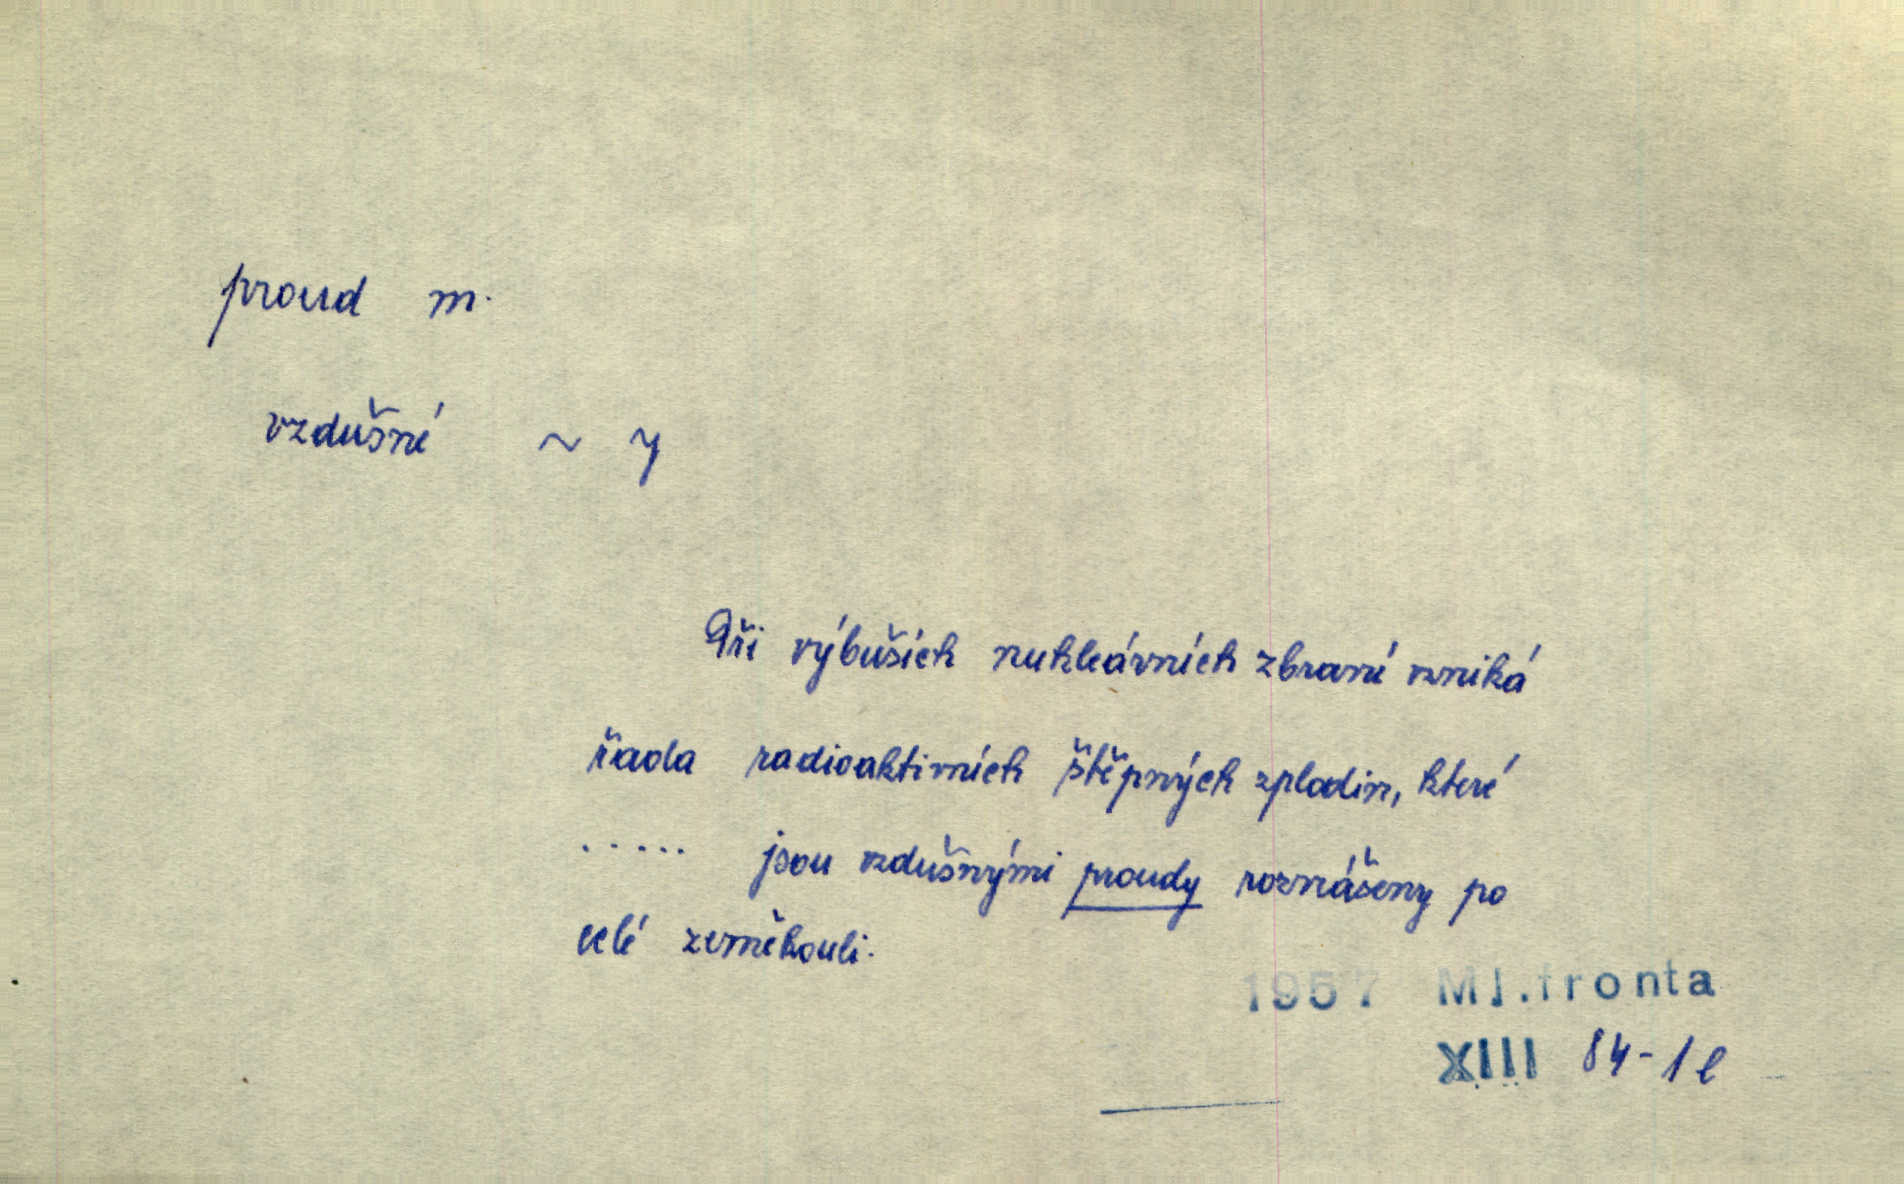 proud m.
vzdušné ~ y
Při výbuších nukleárních zbraní vzniká
řada radioaktivních štěpných zplodin, které
..... jsou vzdušnými proudy roznášeny po
celé zeměkouli.
1957 Ml.fronta
XIII 84-1